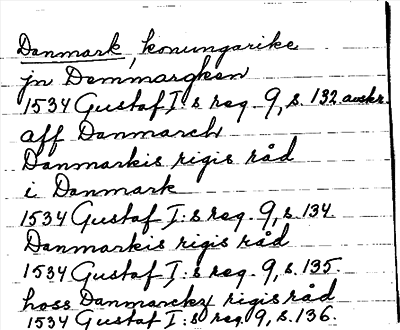 Danmark, konungarike
jn Demmargken
1534 Gustaf I:s reg. 9, s. 132 avskr.
aff Danmarch
Danmarkis rigis råd
i Danmark
1534 Gustaf I:s reg. 9, s. 134.
Danmarkis rigis råd
1534 Gustaf I:s reg. 9, s. 135.
hoss Danmarckz rigis råd
1534 Gustaf I:s reg. 9, s. 136.